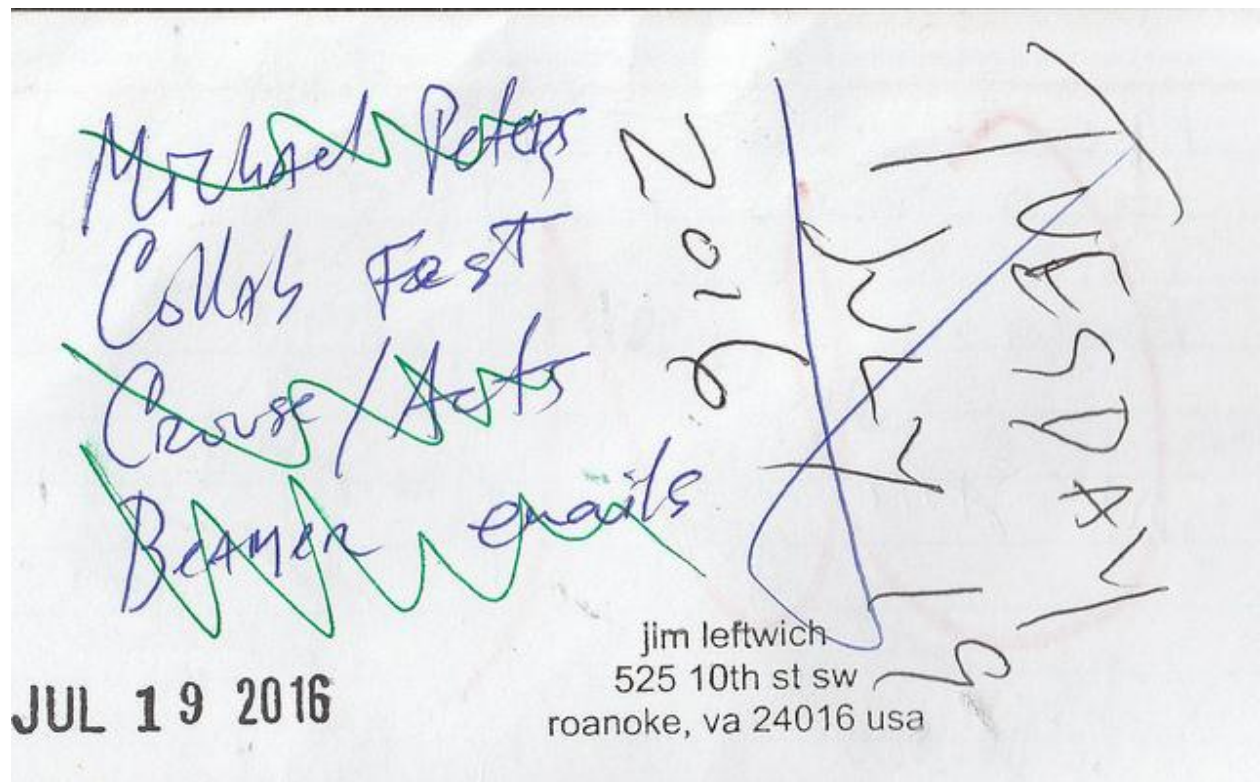 Michael Peters
Collab Fest
Crouse/Acts
Beamer emails
TUESDAY
JULY 19
2016
JUL 19 2016
jim leftwich
525 10th st sw
roanoke, va 24016 usa